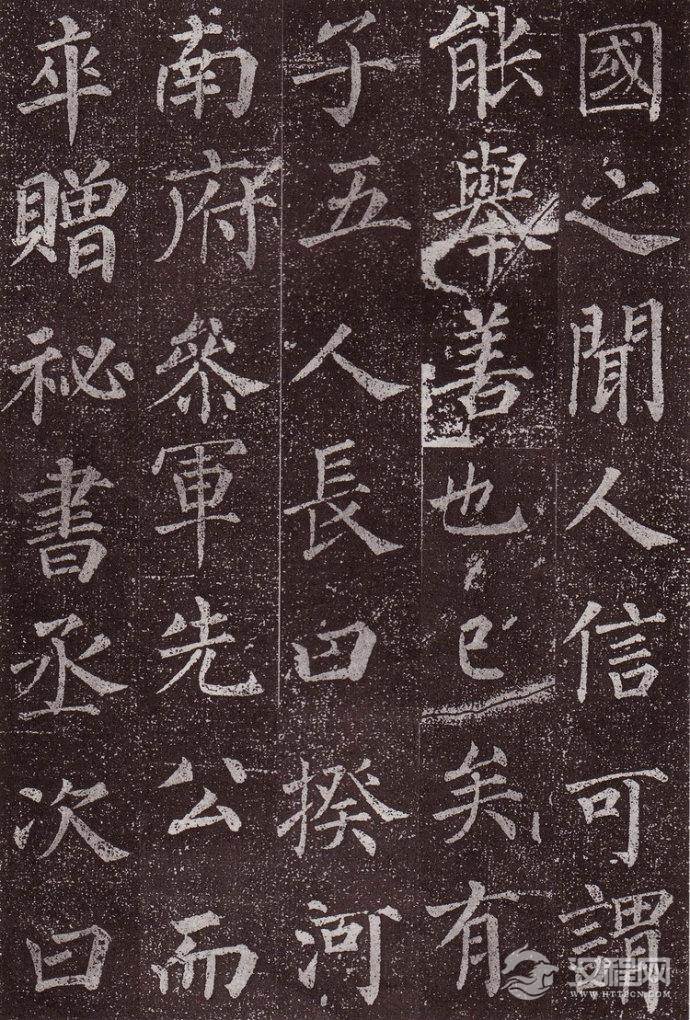 國之聞人信可謂
能舉善也已矣有
子五人長曰揆河
南府參軍先公而
卒贈祕書丞次曰
汉程网
WWW.HTTPCN.COM